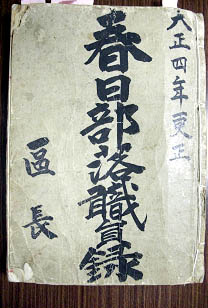 大正四年更正
春日部落職員録
區長